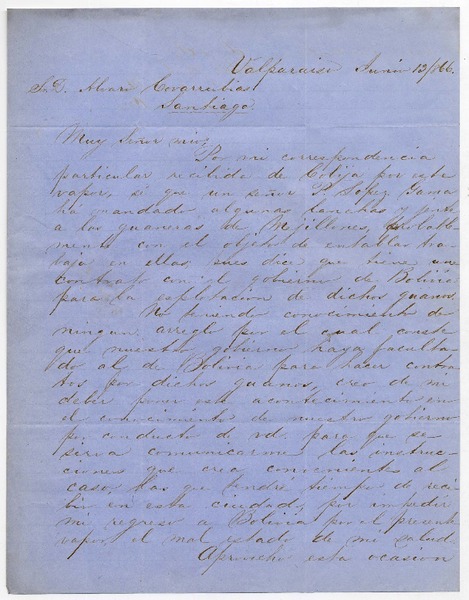 Valparaiso Junio 13/866.
Sr. D. Alvaro Covarrubias
Santiago.
Muy Señor mio;
Por mi correspondencia
particular recibida de Cobija por este
vapor, sé que un señor P. Lopez Gama
há mandado algunas lanchas y jente
a las guaneras de Mejillones,
mente con el objeto de entablar tra-
bajo en ellas, pues dice que tiene un
contrato con el gobierno de Bolivia
para la esplotacion de dichos guanos.
No teniendo conocimiento de
ningun arreglo por el cual conste
que nuestro gobierno haya faculta-
do al de Bolivia para hacer contra-
tos por dichos guanos, creo de mi
deber poner este acontecimiento en
el conocimiento de nuestro gobierno
p. conducto de vd. para que se
sirva comunicarme las instruc-
ciones que crea convenientes al
caso, las que tendré tiempo de reci-
bir en esta ciudad, por impedir
mi regreso a Bolivia por el presente
vapor, el mal estado de mi salud.
Aprovecho esta ocasion